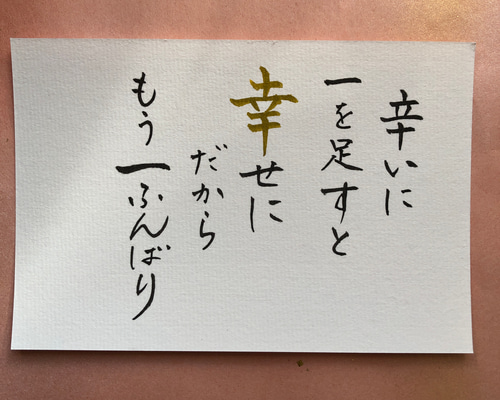 辛いに
一を足すと
幸せに
だから
もう一ふんばり